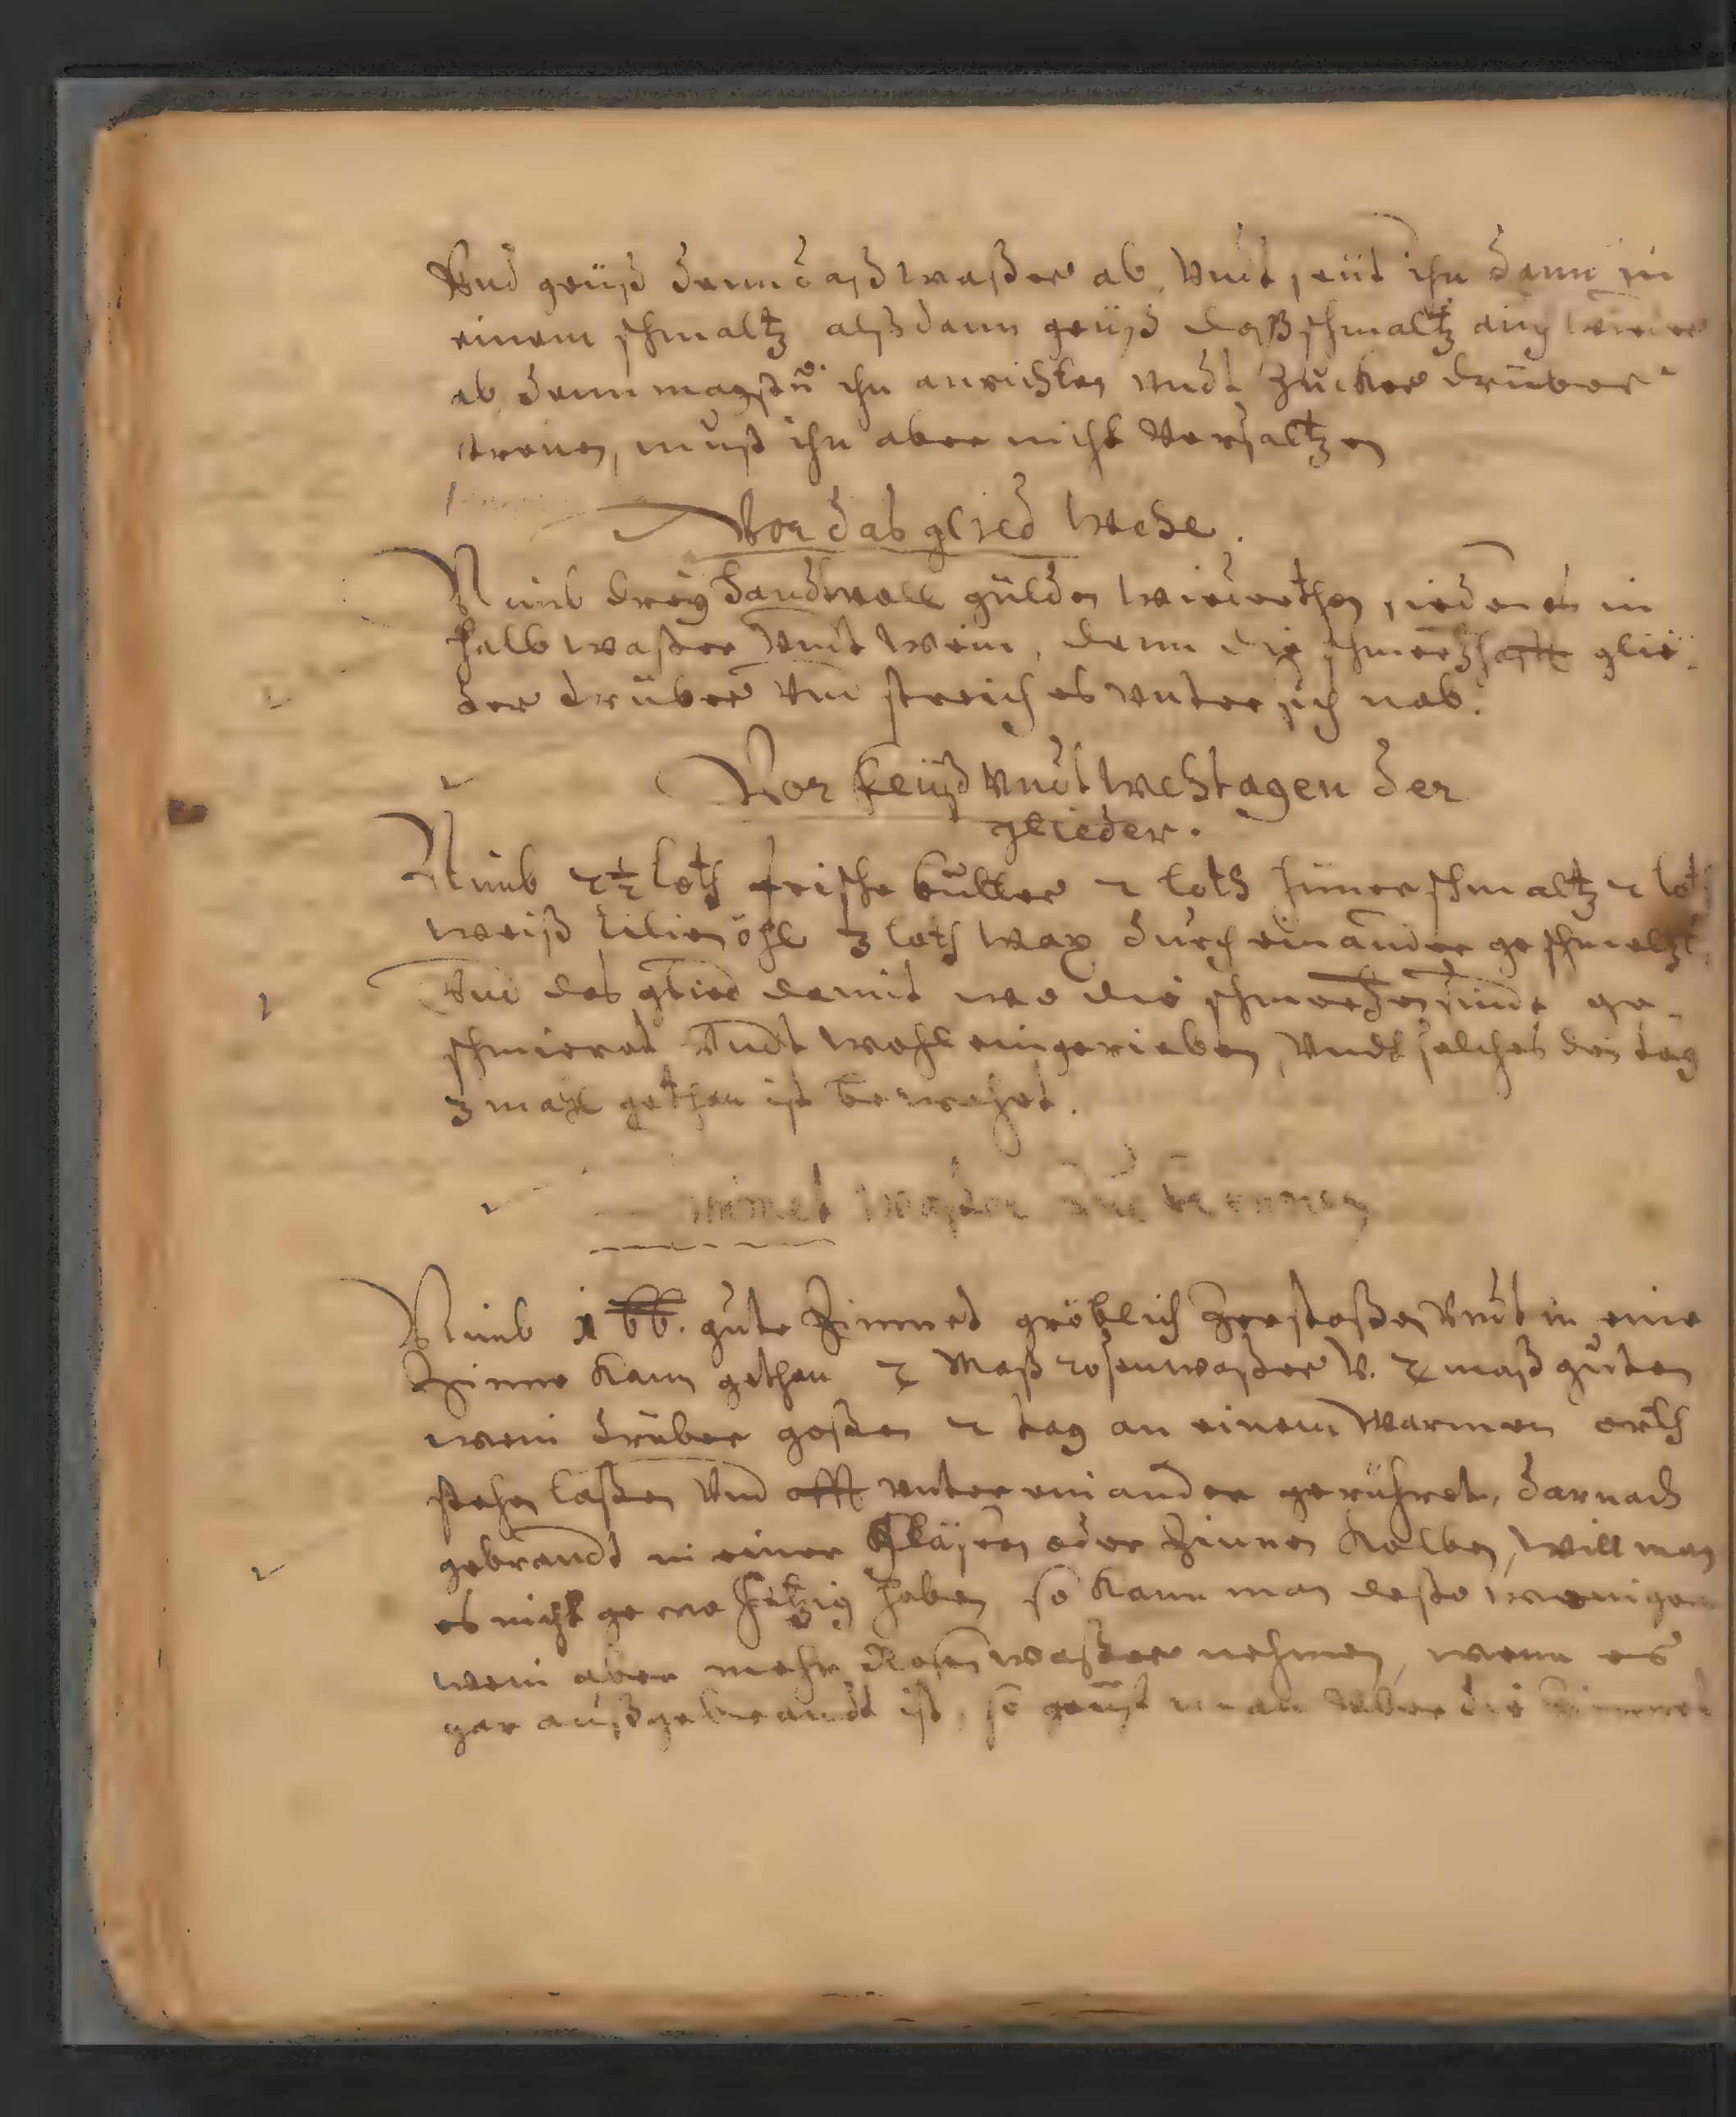 Vnd geüß dann daß waßer ab, Vndt seüt ihn dann in
einem schmaltz alßdann geüß daß schmaltz auch wieder
ab, dann magstu ihn anrichten vndt Zucker drüber
streuen, must ihn aber nicht Versaltzen
Vor das glied wehe.
Nimb drey handtvoll gülden wiederthon, sieden es in
halb waßer Vndt wein, dann die schmertzhafft glie-
der drüber Vnd streich es vnter sich nab.
Vor Vndt wehtagen der
glieder.
Nimb 2½ loth frische butter 2 loth hüner schmaltz 2 loth
weiß lilien öhl 3 loth wax durch einander geschmeltzt,
Vnd das glied damit wo die schmertzen sindt ge-
schmieret Vndt wohl eingerieben, Vndt solches den tag
3 mahl gethan ist bewehrt.
waßer Zue brennen
Nimb 1 lb. gute Zimmet gröblich Zerstoßen Vndt in eine
Zinne Kann gethan 2 Maß rosenwaßer V. 2 maß guten
wein drüber goßen 2 tag an einem Warmen orth
stehen laßen Vnd offt vnter einander gerühret, darnach
gebrandt in einer Gläsern oder Zinnen Kolben, will man
es nicht gerne hitzig haben so Kann man desto weniger
wein aber mehr Rosenwaßer nehmen, wenn es
gar außgebrandt ist, so geüst man Vber die Zimmet